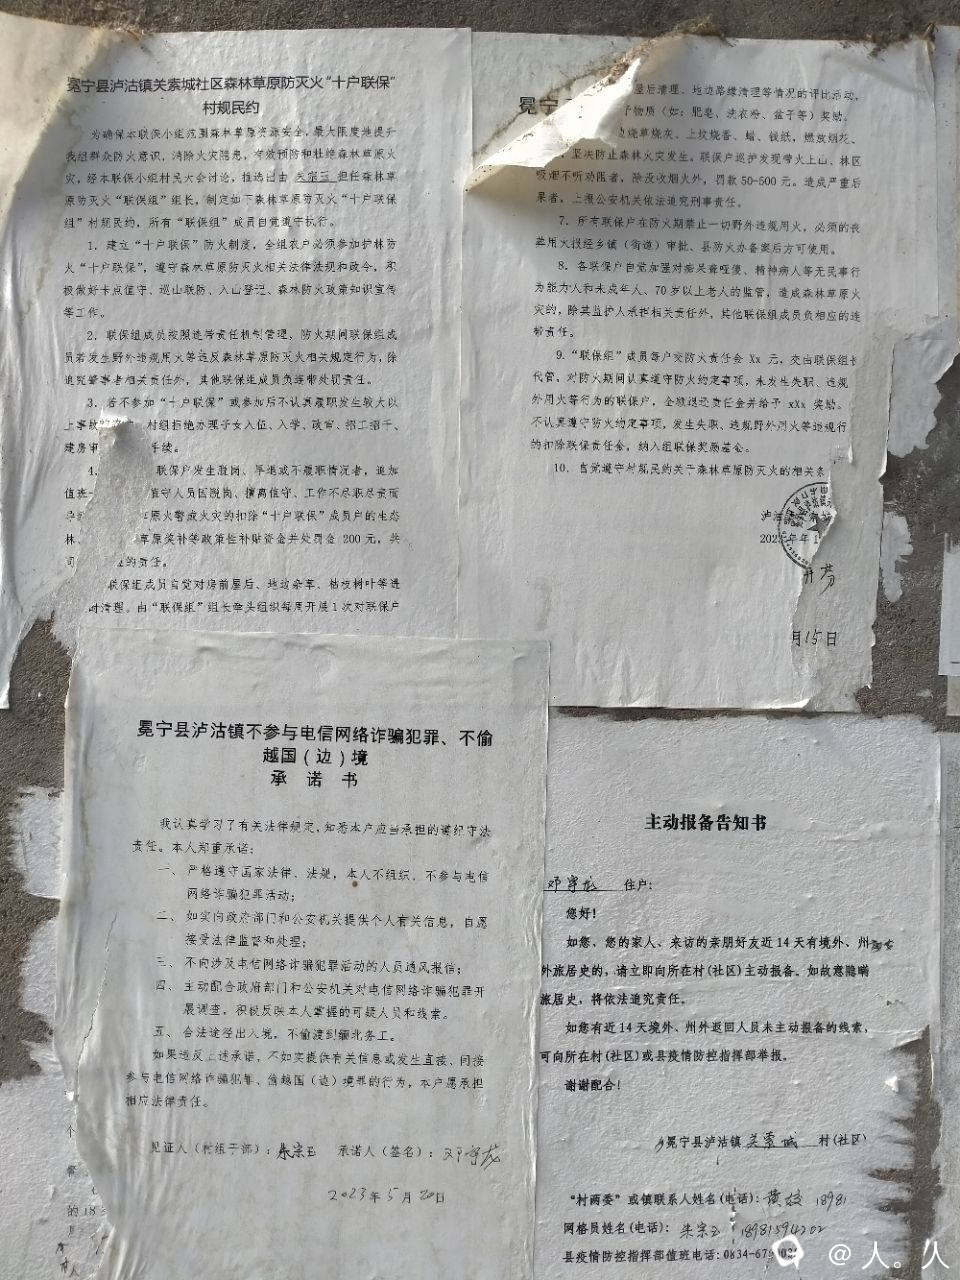 冕宁县泸沽镇关索城社区森林草原防灭火“十户联保”
村规民约
为确保本联保小组范围森林草原资源安全，最大限度地提升
我组群众防火意识，消除火灾隐患，有效预防和杜绝森林草原火
灾，经本联保小组村民大会讨论，推选出由 朱宗玉 担任森林草
原防灭火“联保组”组长，制定如下森林草原防灭火“十户联保
组”村规民约，所有“联保组”成员自觉遵守执行。
1、建立“十户联保”防火制度，全组农户必须参加护林防
火“十户联保”，遵守森林草原防灭火相关法律法规和政令，积
极做好卡点值守、巡山联防、入山登记、森林防火政策知识宣传
等工作。
2、联保组成员按照连带责任机制管理，防火期间联保组成
员若发生野外违规用火等违反森林草原防灭火相关规定行为，除
追究肇事者相关责任外，其他联保组成员负连带处罚责任。
3、若不参加“十户联保”或参加后不认真履职发生较大以
上事故 村组拒绝办理子女入伍、入学、政审、招工招干、
建房审 手续。
4、 联保户发生脱岗、早退或不履职情况者，追加
值班 值守人员因脱岗、擅离值守、工作不尽职尽责而
原火警或火灾的扣除“十户联保”成员户的生态
林、 草原奖补等政策性补贴资金并处罚金 200 元，共
的责任。
联保组成员自觉对房前屋后、地边杂草、枯枝树叶等进
时清理。由“联保组”组长牵头组织每周开展 1 次对联保户
屋后清理、地边路缘清理等情况的评比活动，
物质（如：肥皂、洗衣粉、盆子等）奖励。
边烧草烧灰、上坟烧香、蜡、钱纸，燃放烟花、
坚决防止森林火灾发生。联保户巡护发现带火上山、林区
吸烟不听劝阻者，除没收烟火外，罚款 50-500 元。造成严重后
果者，上报公安机关依法追究刑事责任。
7、所有联保户在防火期禁止一切野外违规用火，必须的农
事用火报经乡镇（街道）审批、县防火办备案后方可使用。
8、各联保户自觉加强对痴呆聋哑傻、精神病人等无民事行
为能力人和未成年人、70 岁以上老人的监管，造成森林草原火
灾的，除其监护人承担相关责任外，其他联保组成员负相应的连
带责任。
9、“联保组”成员每户交防火责任金 Xx 元，交由联保组长
代管，对防火期间认真遵守防火约定事项，未发生失职、违规
外用火等行为的联保户，全额退还责任金并给予 xXx 奖励。
不认真遵守防火约定事项，发生失职、违规野外用火等违规行
的扣除联保责任金，纳入组联保奖励基金。
10、自觉遵守村规民约关于森林草原防灭火的相关条
泸沽
月15日
冕宁县泸沽镇不参与电信网络诈骗犯罪、不偷
越国（边）境
承 诺 书
我认真学习了有关法律规定，知悉本户应当承担的遵纪守法
责任。本人郑重承诺：
一、 严格遵守国家法律、法规，本人不组织、不参与电信
网络诈骗犯罪活动；
二、 如实向政府部门和公安机关提供个人有关信息，自愿
接受法律监督和处理；
三、 不向涉及电信网络诈骗犯罪活动的人员通风报信；
四、 主动配合政府部门和公安机关对电信网络诈骗犯罪开
展调查，积极反映本人掌握的可疑人员和线索。
五、 合法途径出入境，不偷渡到缅北务工。
如果违反上述承诺，不如实提供有关信息或发生直接、间接
参与电信网络诈骗犯罪、偷越国（边）境罪的行为，本户愿承担
相应法律责任。
见证人（村组干部）：朱宗玉 承诺人（签名）：邓宇龙
2023年5月20日
主动报备告知书
邓宇龙 住户：
您好！
如您、您的家人、来访的亲朋好友近 14 天有境外、州
外旅居史的，请立即向所在村(社区)主动报备。如故意隐瞒
旅居史，将依法追究责任。
如您有近 14 天境外、州外返回人员未主动报备的线索，
可向所在村(社区)或县疫情防控指挥部举报。
谢谢配合！
冕宁县泸沽镇 关索城 村(社区)
“村两委”或镇联系人姓名(电话): 黄姣 18981
网格员姓名(电话): 朱宗玉 18981594202
县疫情防控指挥部值班电话: 0834-67
@人。人